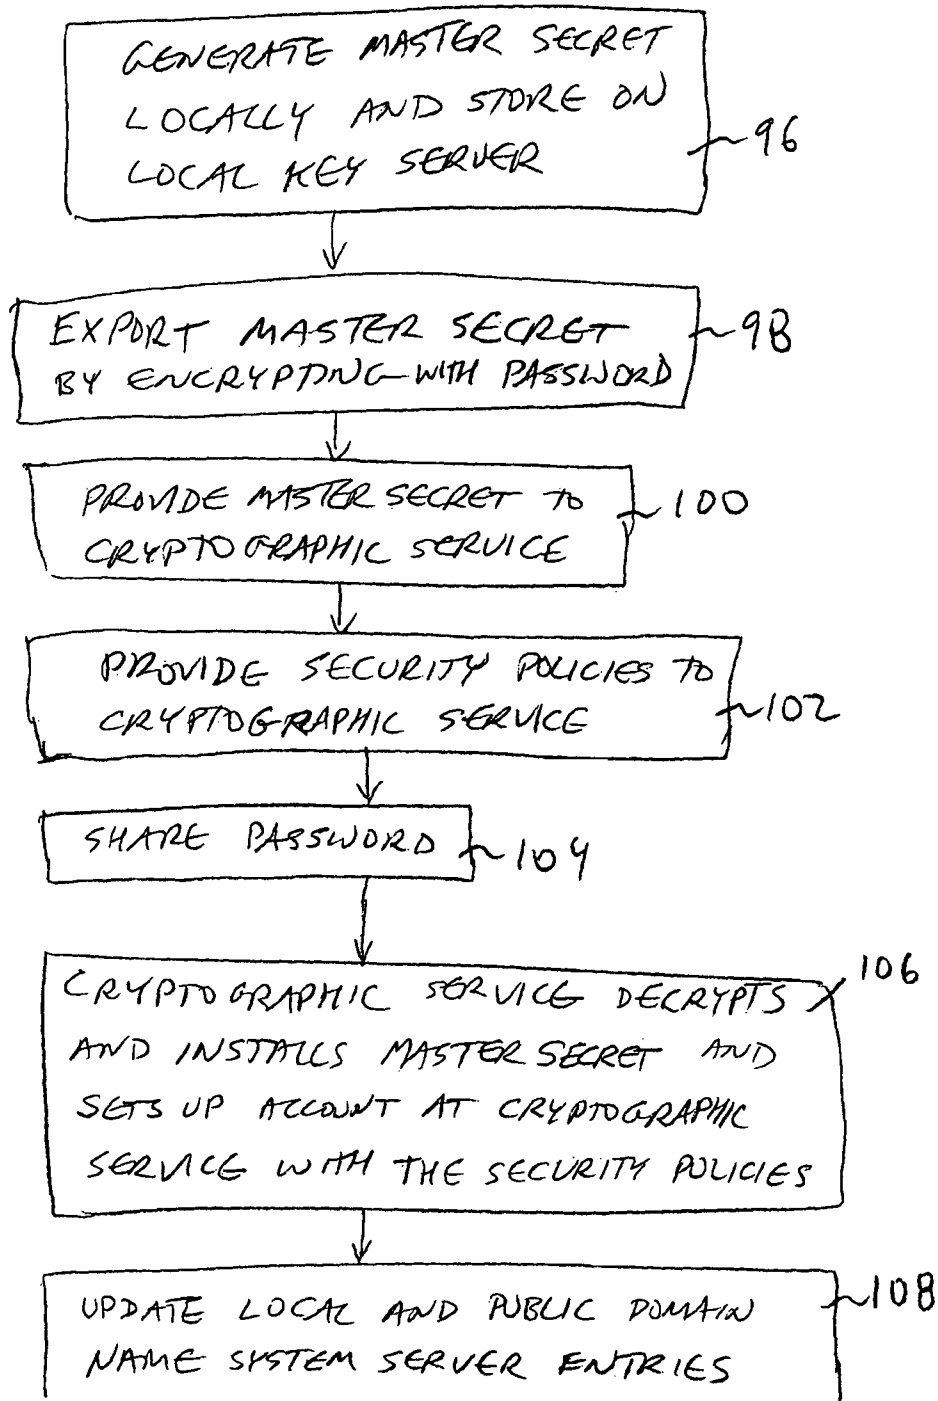 GENERATE MASTER SECRET
LOCALLY AND STORE ON
LOCAL KEY SERVER
96
EXPORT MASTER SECRET
BY ENCRYPTING WITH PASSWORD
98
PROVIDE MASTER SECRET TO
CRYPTOGRAPHIC SERVICE
100
PROVIDE SECURITY POLICIES TO
CRYPTOGRAPHIC SERVICE
102
SHARE PASSWORD
104
106
CRYPTOGRAPHIC SERVICE DECRYPTS
AND INSTALLS MASTER SECRET AND
SETS UP ACCOUNT AT CRYPTOGRAPHIC
SERVICE WITH THE SECURITY POLICIES
UPDATE LOCAL AND PUBLIC DOMAIN
NAME SYSTEM SERVER ENTRIES
108